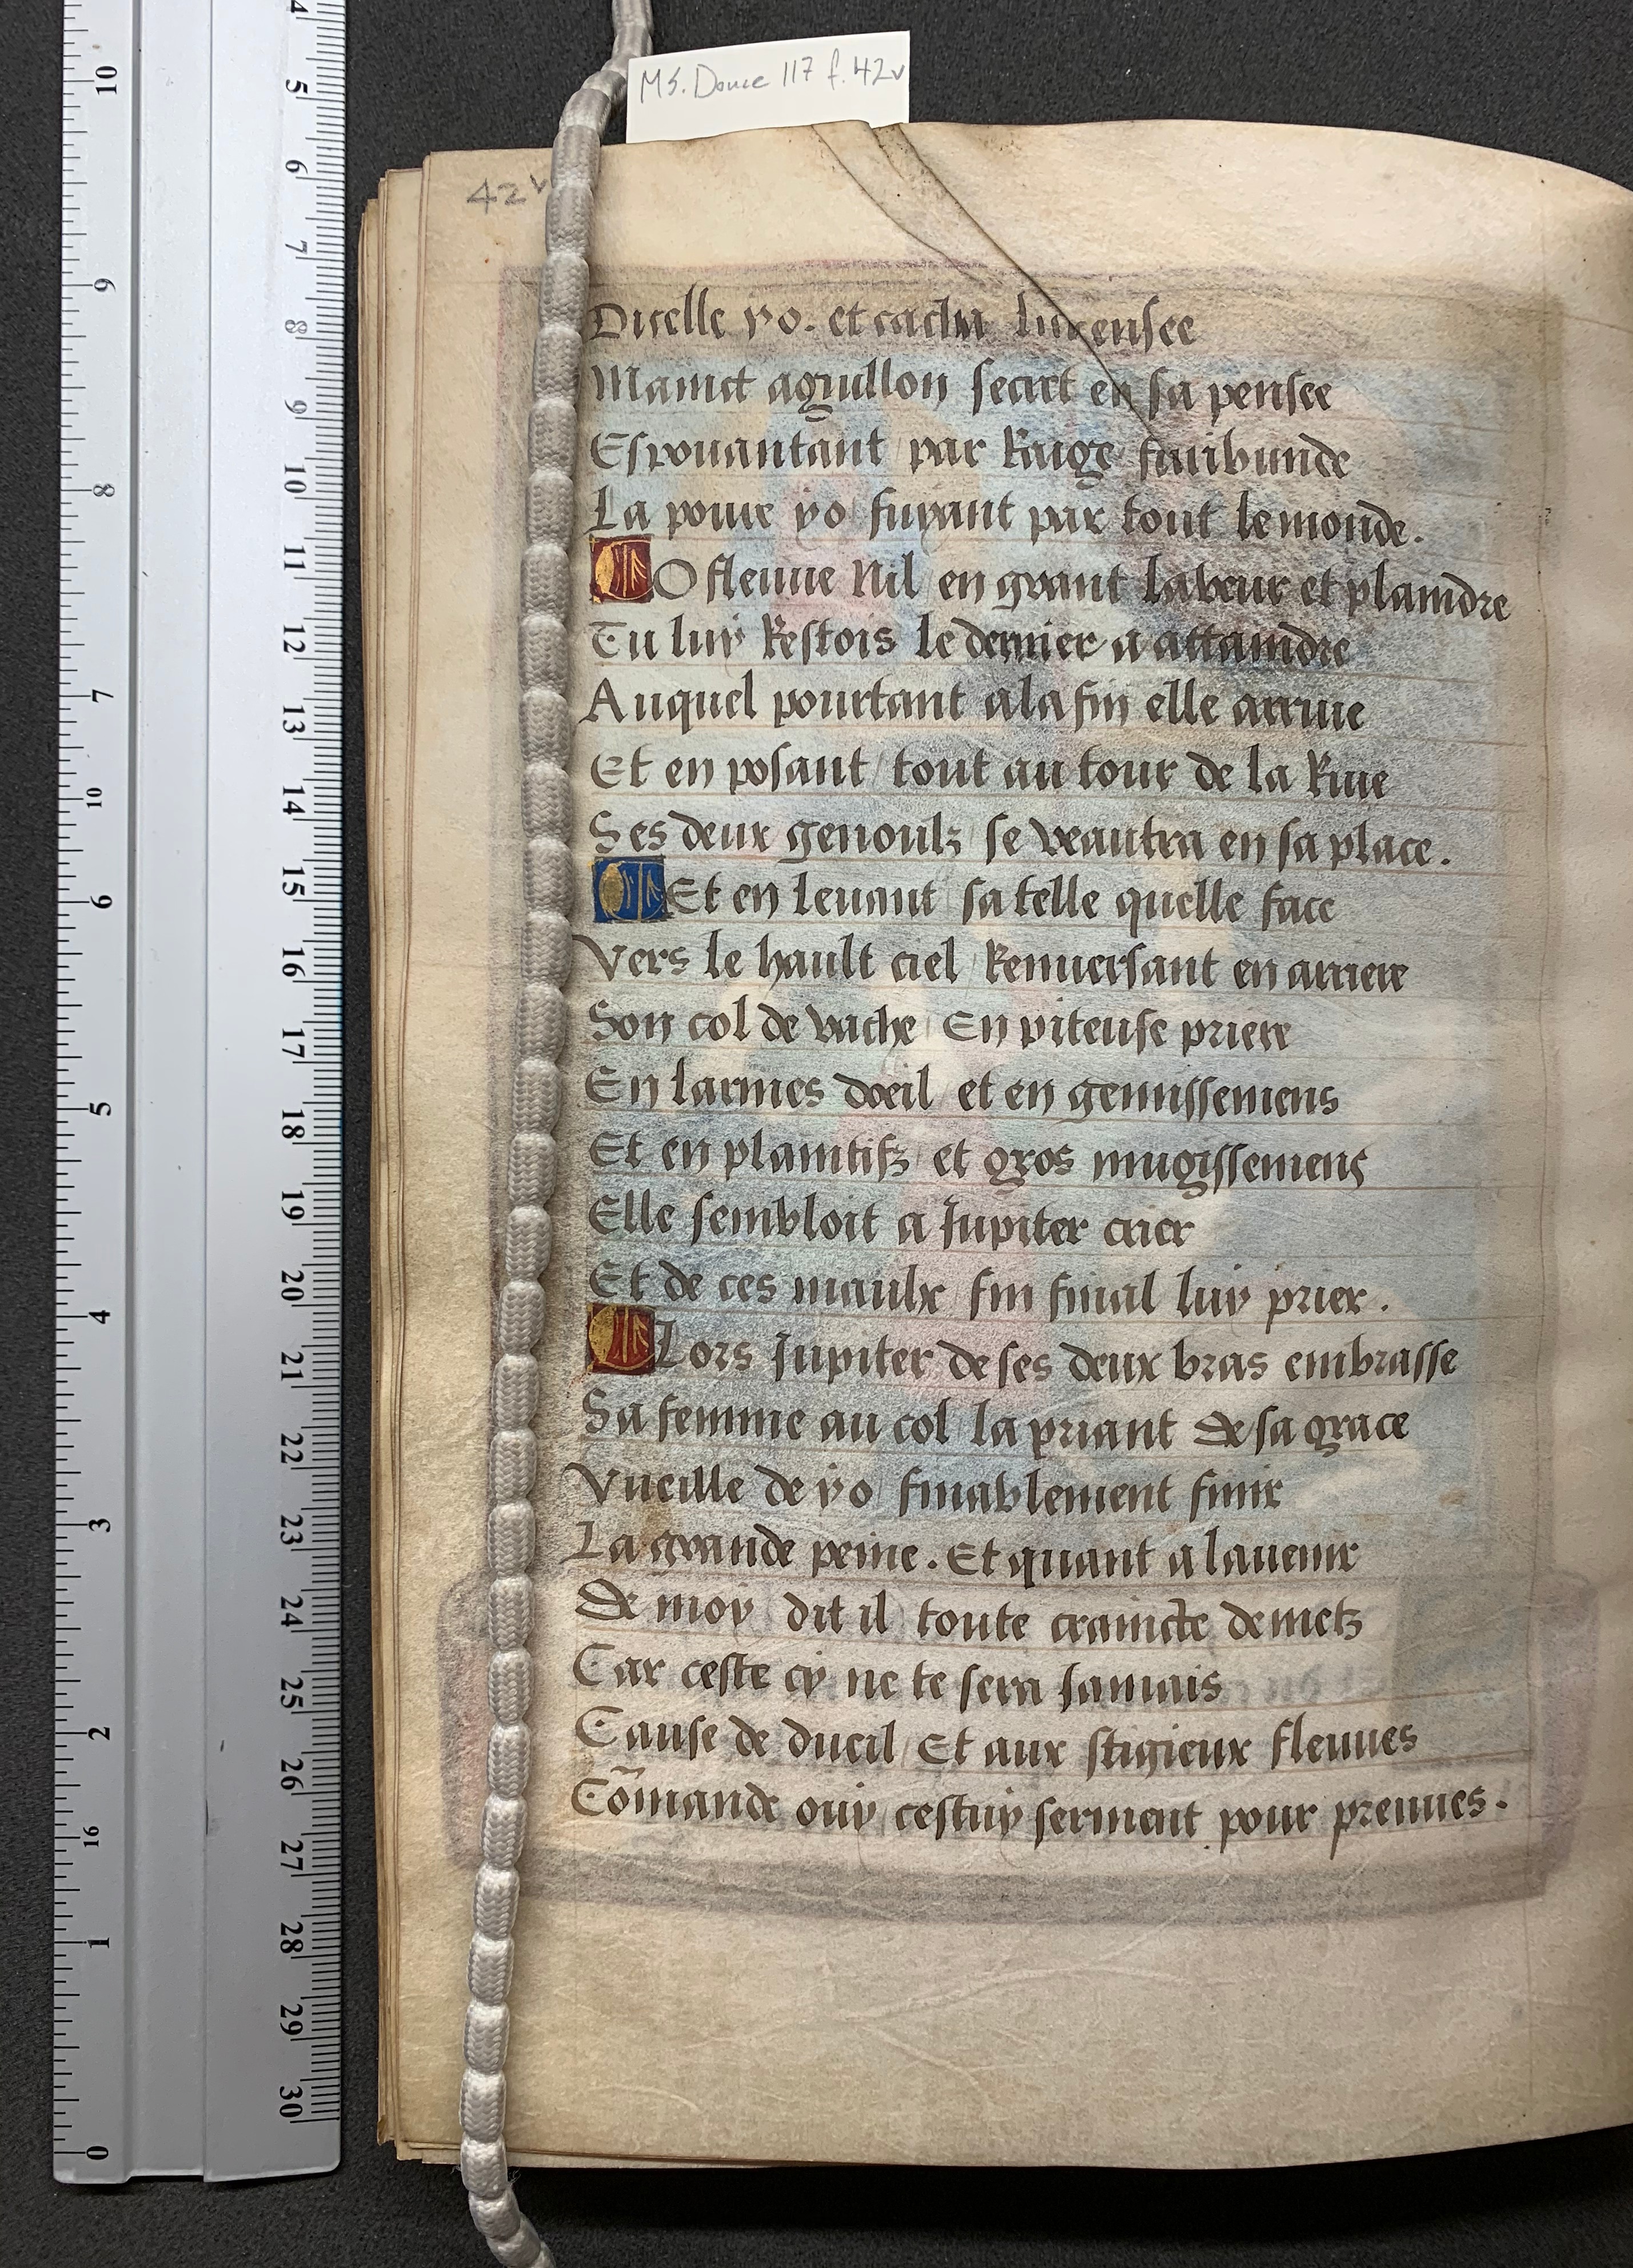 MS. Douce 117 f. 42v
42v
Dicelle yo. et cacha linsensee
Mainct aguillon secret en sa pensee
Espouantant par Raige furibunde
La poure yo fuyant par tout le monde.
O fleuue Nil en grant labeur et plaindre
Tu luy Restois le dernier a attaindre
Auquel pourtant a la fin elle arriue
Et en posant tout au tour de la Riue
Ses deux genoulz se veautra en sa place.
Et en leuant sa telle quelle face
Vers le hault ciel Renuersant en arriere
Son col de vache En piteuse priere
En larmes doeil et en gemissemens
Et en plaintifz et gros mugissemens
Elle sembloit a Jupiter crier
Et de ces maulx fin final luy prier.
Lors Jupiter de ses deux bras embrasse
Sa femme au col la priant de sa grace
Vueille de yo finablement finir
La grande peine. Et quant a laduenir
De moy dit il toute craincte demetz
Car ceste cy ne te sera Jamais
Cause de dueil Et aux stigieux fleuues
Cõmande ouy cestuy serment pour preuues.